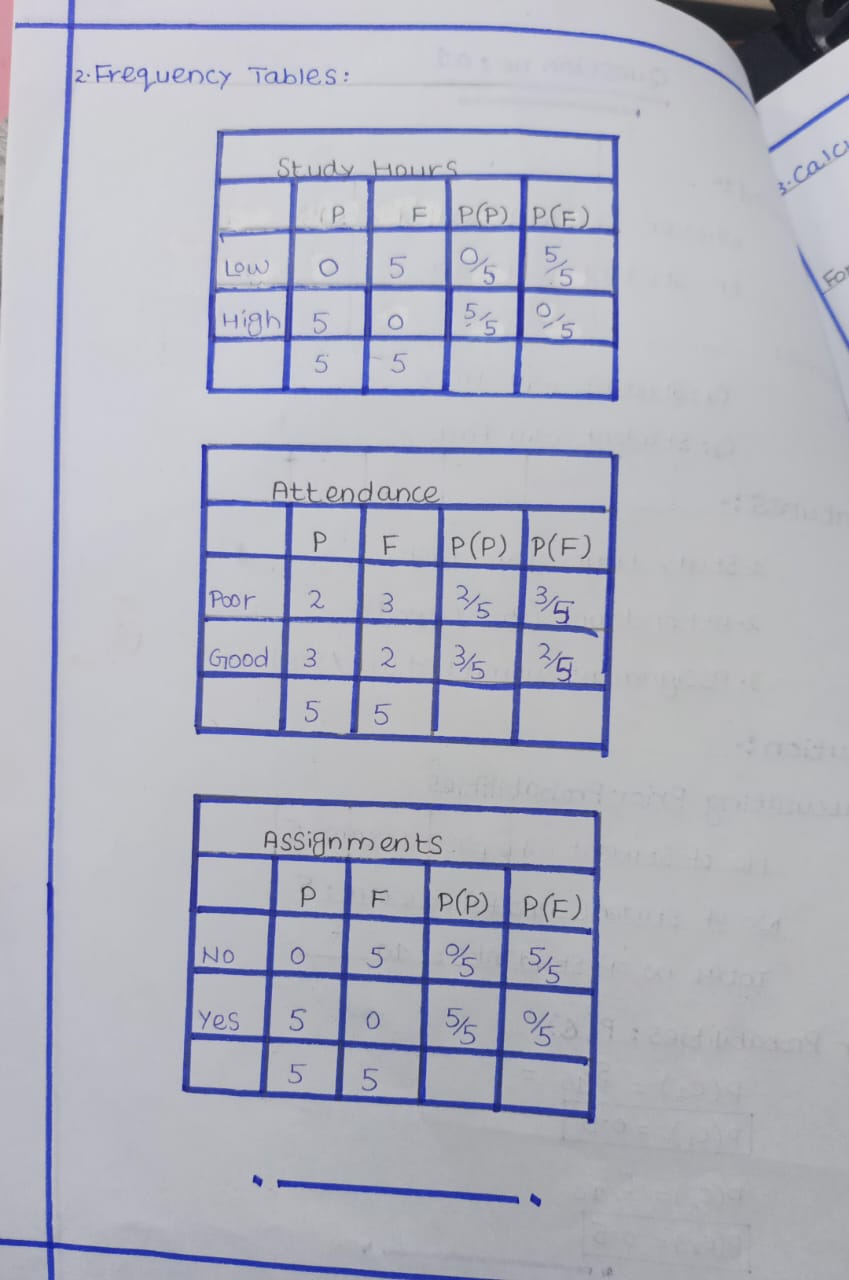 2. Frequency Tables:
Study Hours
P F P(P) P(F)
Low 0 5 0/5 5/5
High 5 0 5/5 0/5
5 5
Attendance
P F P(P) P(F)
Poor 2 3 2/5 3/5
Good 3 2 3/5 2/5
5 5
Assignments
P F P(P) P(F)
No 0 5 0/5 5/5
Yes 5 0 5/5 0/5
5 5
3. Calcu
For